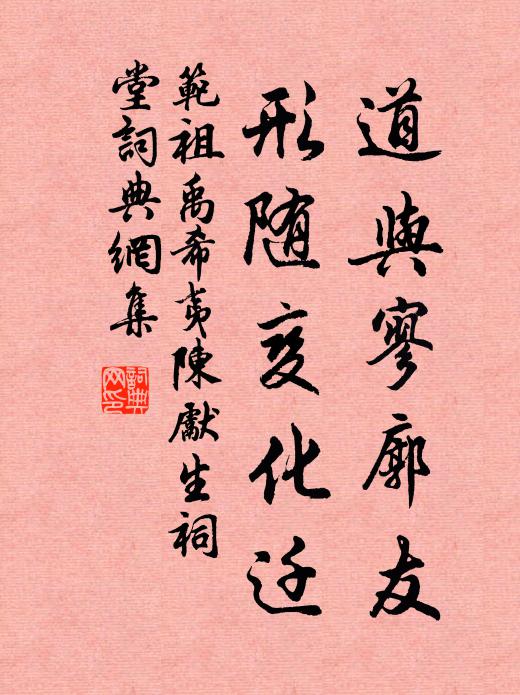 道與寥廓友
形随变化迁
範祖禹希夷陳獻生祠
堂詞典網集
詞典
网印